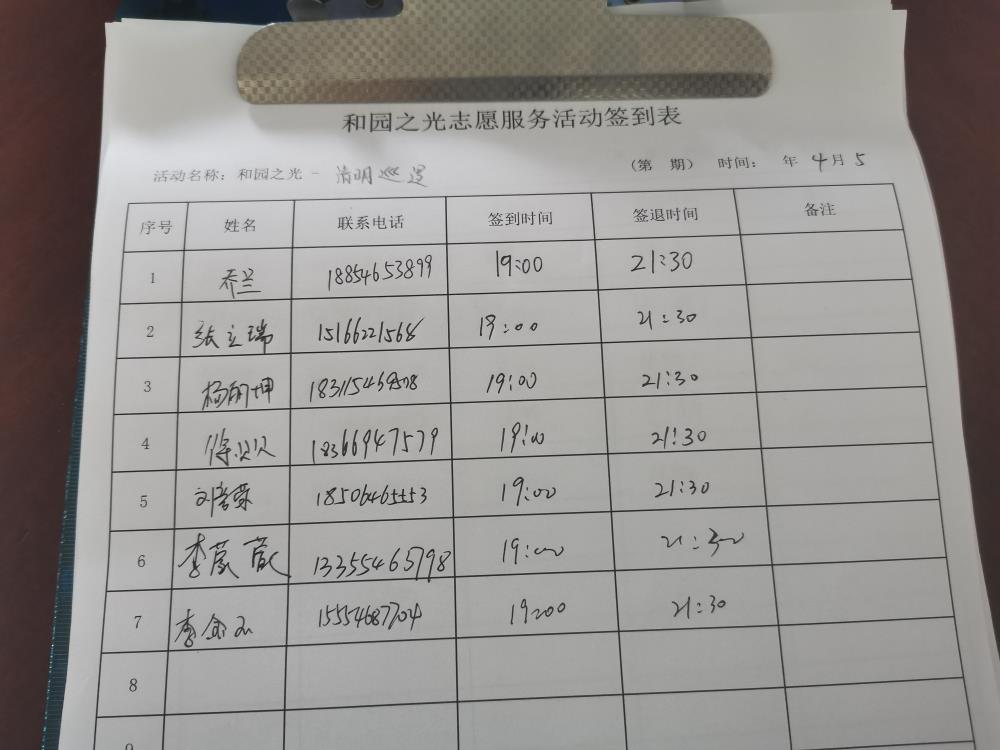 和园之光志愿服务活动签到表
活动名称：和园之光 - 清明巡逻
（第 期） 时间： 年 4月 5
序号 姓名 联系电话 签到时间 签退时间 备注
1 乔兰 18854653899 19:00 21:30
2 张立瑞 15166221568 19:00 21:30
3 杨丽坤 18311546 19:00 21:30
4 徐贝贝 18366947579 19:00 21:30
5 刘 荣 18506465553 19:00 21:30
6 李 13355465798 19:00 21:30
7 李金玉 15554687704 19:00 21:30
8
9